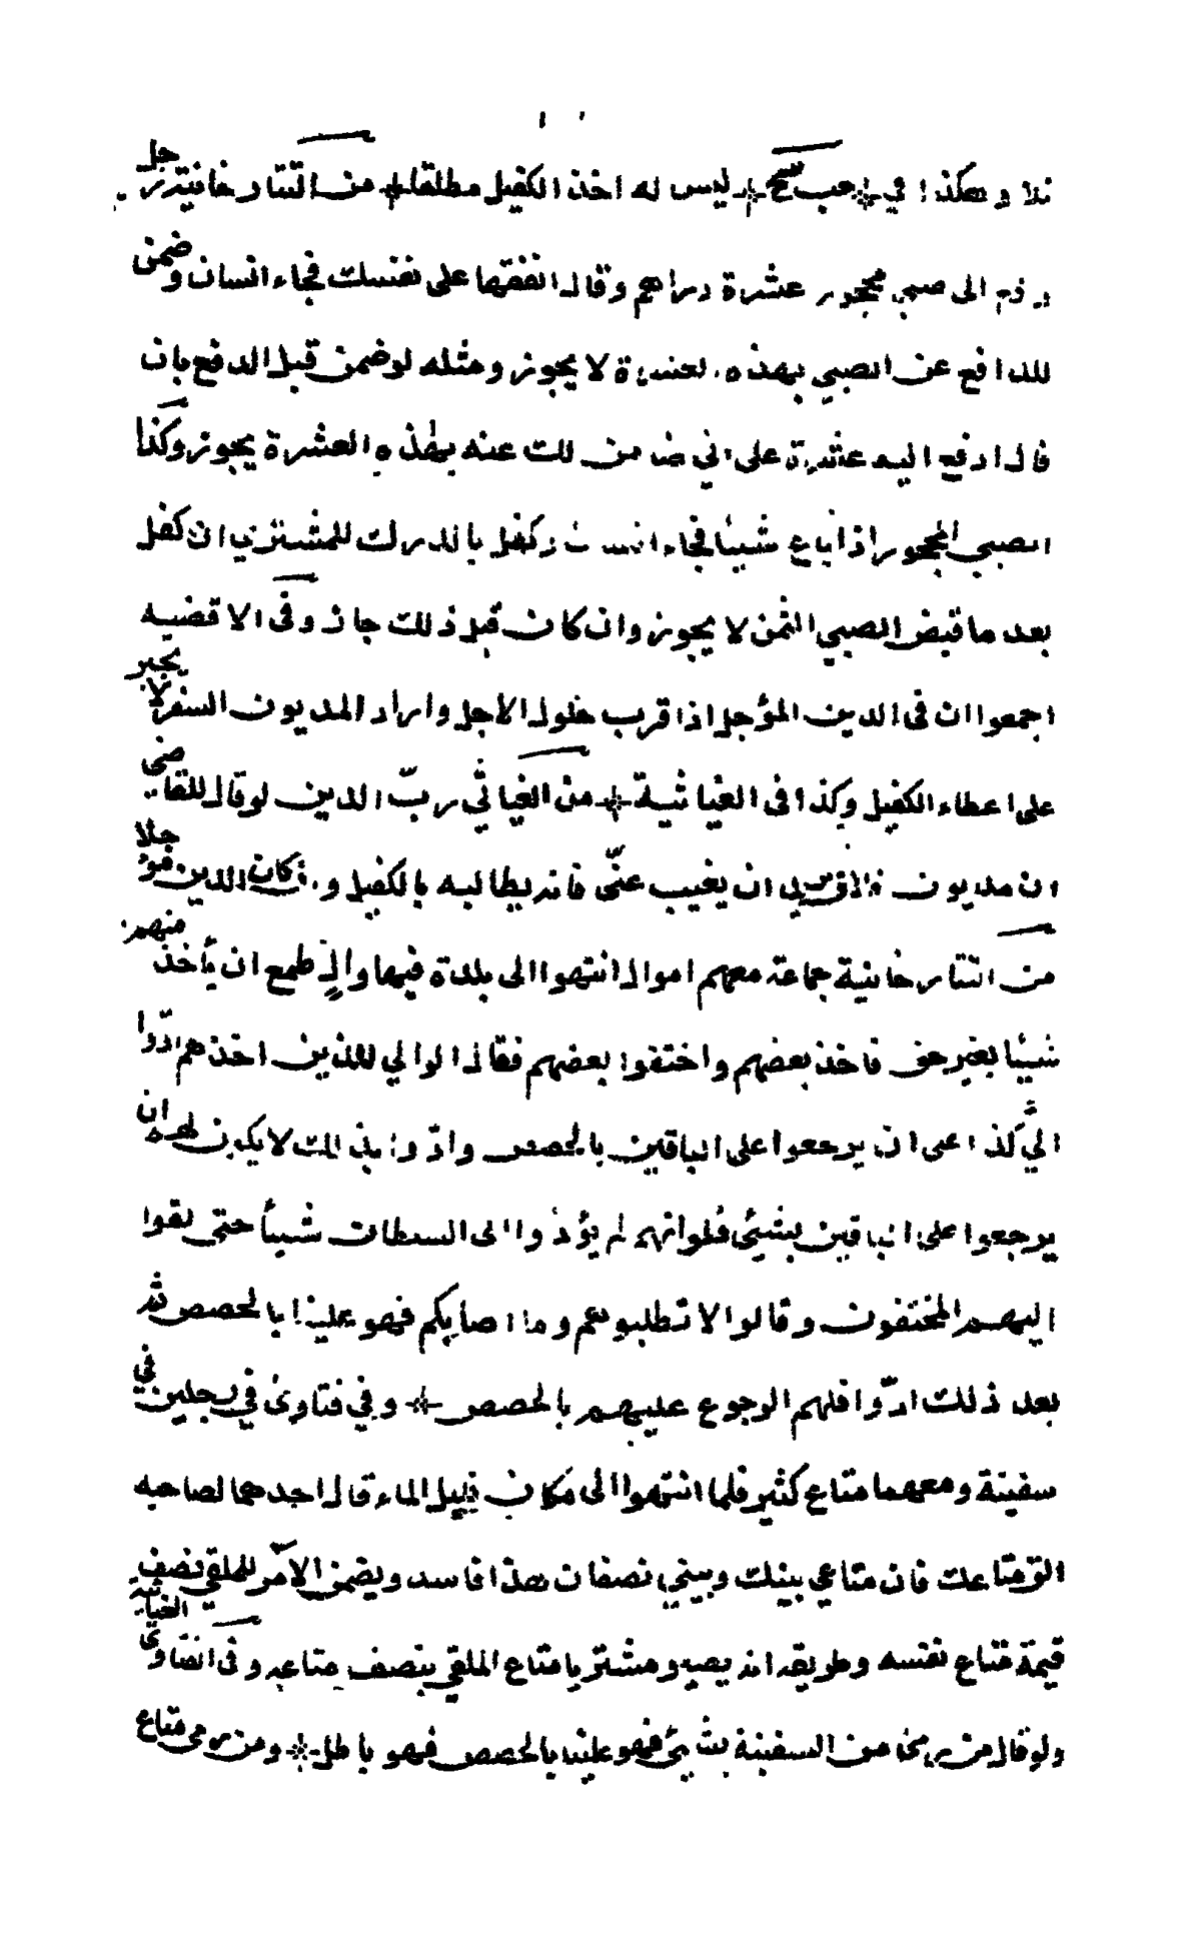 فلا وهكذا في * ليس له اخذ الكفيل مطلقا * من التتار خانية رجل
دفع الى صبي محجور عشرة دراهم وقال انفقها على نفسك فجاء انسان وضمن
للدافع عن الصبي بهذه العشرة لا يجوز ومثله لو ضمن قبل الدفع بان
قال ادفع اليه عشرة على اني ضامن لك عنه بهذه العشرة يجوز وكذا
الصبي المحجور اذا باع شيئا فجاء انسان وكفل بالدرك للمشتري ان كفل
بعد ما قبض الصبي الثمن لا يجوز وان كان قبل ذلك جاز وفى الاقضيه
اجمعوا ان فى الدين المؤجل اذا قرب حلول الاجل واراد المديون السفر لا يجبر
على اعطاء الكفيل وكذا فى الغياثية * من الغياثي ربّ الدين لو قال للقاضي
ان مديون فلان يريد ان يغيب عنّى فانه يطالبه بالكفيل وان كان الدين مؤجلا
من التتار خانية جماعة معهم اموال انتهوا الى بلدة فيها والٍ طمع ان يأخذ منهم
شيئا بغير حق فاخذ بعضهم واختفوا بعضهم فقال الوالي للذين اخذهم ادّوا
اليّ كذا على ان يرجعوا على الباقين بالحصص وادّوا بذلك لا يكون لهم ان
يرجعوا على الباقين بشيئ فلو انهم لم يؤدوا الى السلطان شيئا حتى لقوا
اليهم المختفون وقالوا لا تطلبوهم وما اصابكم فهو علينا بالحصص ثم
بعد ذلك ادّوا فلهم الرجوع عليهم بالحصص * وفي فتاوى في رجلين في
سفينة ومعهما متاع كثير فلما انتهوا الى مكان قليل الماء قال احدهما لصاحبه
الق متاعك فان متاعي بينك وبيني نصفان هذا فاسد ويضمن الآمر للملقي نصف
قيمة متاع نفسه وطريقه انه يصير مشتريا متاع الملقي بنصف متاعه وفى الفتاوى الغياثية
ولو قال من رمى من السفينة بشيئ فهو علينا بالحصص فهو باطل * ومن رمى متاع